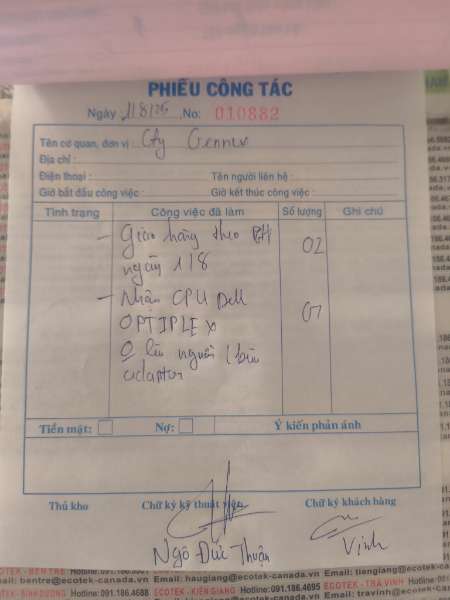 PHIẾU CÔNG TÁC
Ngày 1/8/25 No: 010882
Tên cơ quan, đơn vị: Cty Gennex
Địa chỉ:
Điện thoại: Tên người liên hệ:
Giờ bắt đầu công việc: Giờ kết thúc công việc:
Tình trạng Công việc đã làm Số lượng Ghi chú
- Giao hàng theo ĐH 02
ngày 1/8
- Nhận CPU Dell 01
OPTIPLEX
lên nguồn
adaptor
Tiền mặt: Nợ: Ý kiến phản ánh
Thủ kho Chữ ký kỹ thuật viên Chữ ký khách hàng
Ngô Đức Thuận Vịnh
ECOTEK - BẾN TRE Hotline:
mail: bentre@ecotek-canada.vn Email: haugiang@ecotek-canada.vn Email: tiengiang@ecotek-canada.vn
ECOTEK - BÌNH DƯƠNG Hotline: 091.186.4688 ECOTEK - KIÊN GIANG Hotline: 091.186.4695 ECOTEK - TRÀ VINH Hotline:
Email: travinh@ecotek-canada.vn